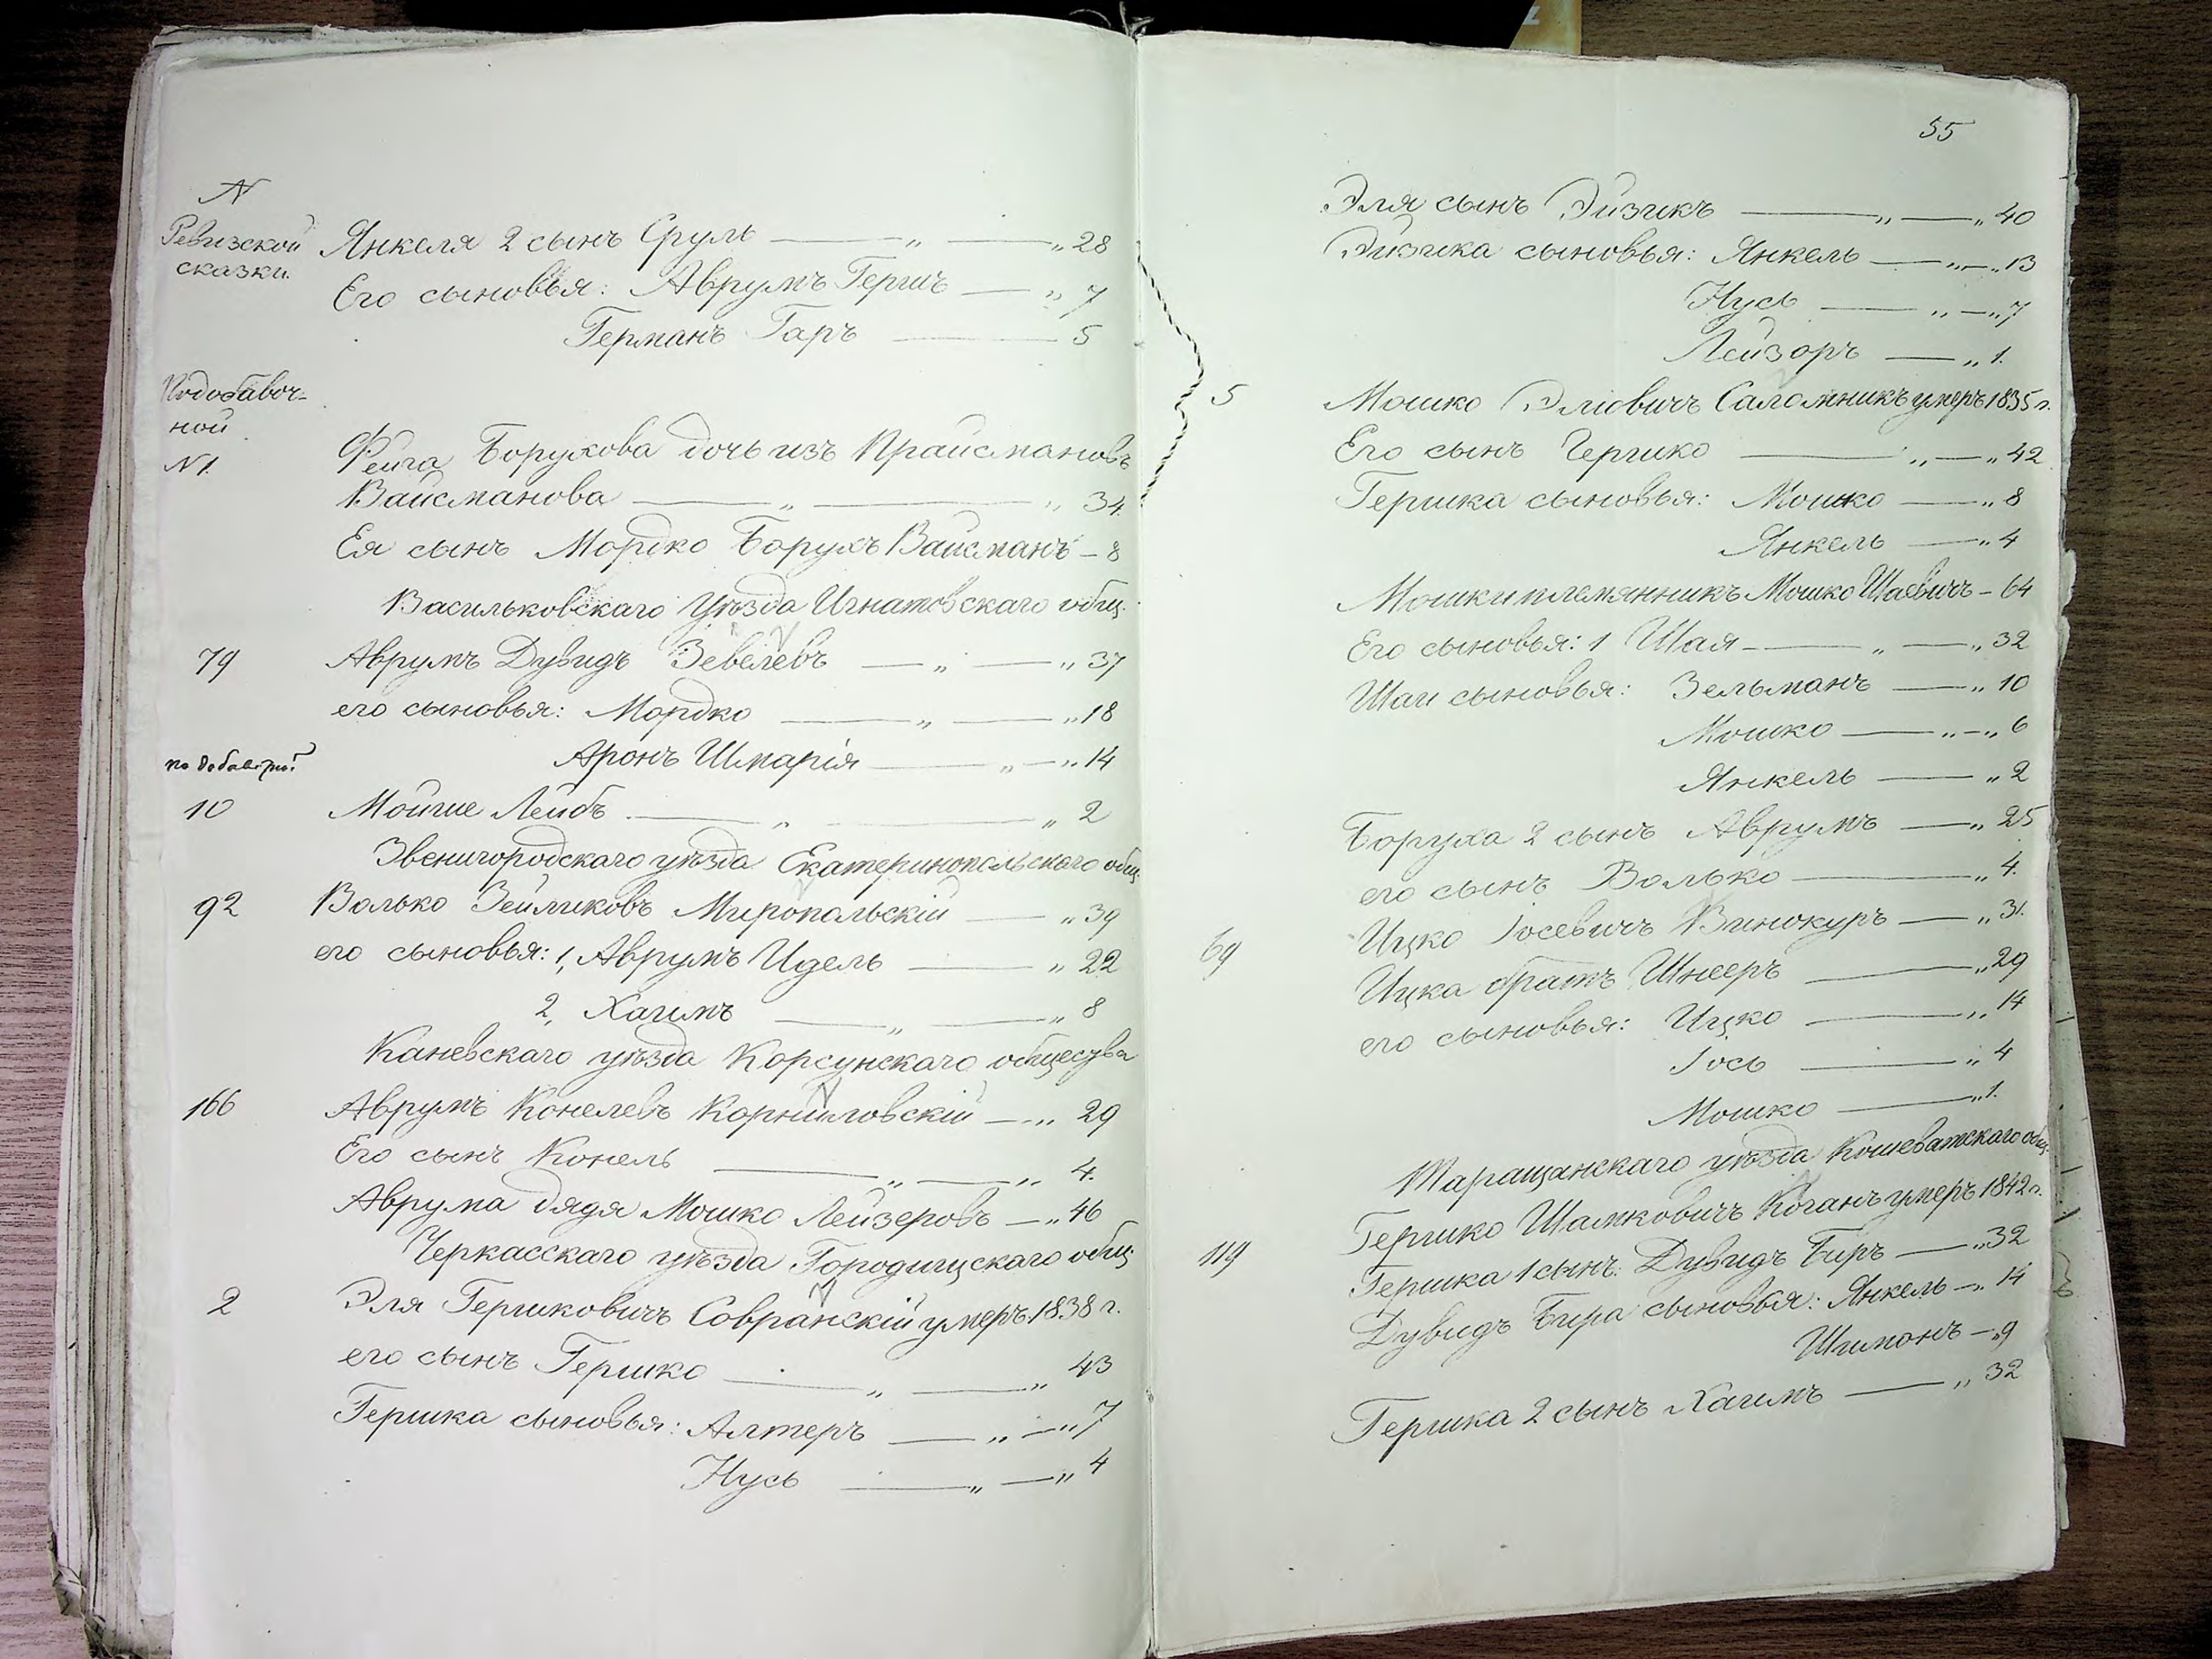 №
Ревизской
сказки.
Янкеля 2 сынъ Сруль — „ — „ 28
Его сыновья: Аврумъ Гершъ — „ 7
Германъ Гаръ — 5
По добавоч-
ной
№ 1.
Фейга Борухова дочь изъ Прайсмановъ
Вайсманова — „ — „ 34.
Ея сынъ Мордко Борухъ Вайсманъ — 8
Васильковскаго Уѣзда Игнатовскаго общ.
79 Аврумъ Дувидъ Зевелевъ — „ — „ 37
его сыновья: Мордко — „ — „ 18
Аронъ Шмарія — „ — „ 14
по добавочной
10 Мойше Лейбъ — „ — „ 2
Звенигородскаго уѣзда Екатеринопольскаго общ.
92 Волько Зейликовъ Миропольскій — „ 39
его сыновья: 1, Аврумъ Идель — „ 22
2, Хаимъ — „ — „ 8
Каневскаго уѣзда Корсунскаго общества
166 Аврумъ Конелевъ Корниловскій — „ 29
Его сынъ Конель — „ — „ 4.
Аврума дядя Мошко Лейзеровъ — „ 46
Черкасскаго уѣзда Городищскаго общ.
2 Эля Гершковичъ Совранскій умеръ 1838 г.
его сынъ Гершко — „ — „ 43
Гершка сыновья: Алтеръ — „ — „ 7
Нусь — „ — „ 4
55
Эля сынъ Эйзикъ — „ — „ 40
Эйзика сыновья: Янкель — „ — „ 13
Нусь — „ — „ 7
Лейзоръ — „ 1.
5 Мошко Эліовичъ Саломникъ умеръ 1835 г.
Его сынъ Гершко — „ — „ 42
Гершка сыновья: Мошко — „ 8
Янкель — „ 4
Мошки племянникъ Мошко Шаевичъ — 64
Его сыновья: 1 Шая — „ — „ 32
Шаи сыновья: Зельманъ — „ 10
Мошко — „ — „ 6
Янкель — „ 2
Боруха 2 сынъ Аврумъ — „ 25
его сынъ Волько — „ 4.
69 Ицко Іосевичъ Винокуръ — „ 31.
Ицка братъ Шнееръ — „ 29
его сыновья: Ицко — „ 14
Іось — „ 4
Мошко — „ 1.
Таращанскаго уѣзда Кошеватскаго общ.
119 Гершко Шамковичъ Коганъ умеръ 1842 г.
Гершка 1 сынъ: Дувидъ Биръ — „ 32
Дувидъ Бира сыновья: Янкель — „ 14
Шимонъ — „ 9
Гершка 2 сынъ Хаимъ — „ 32